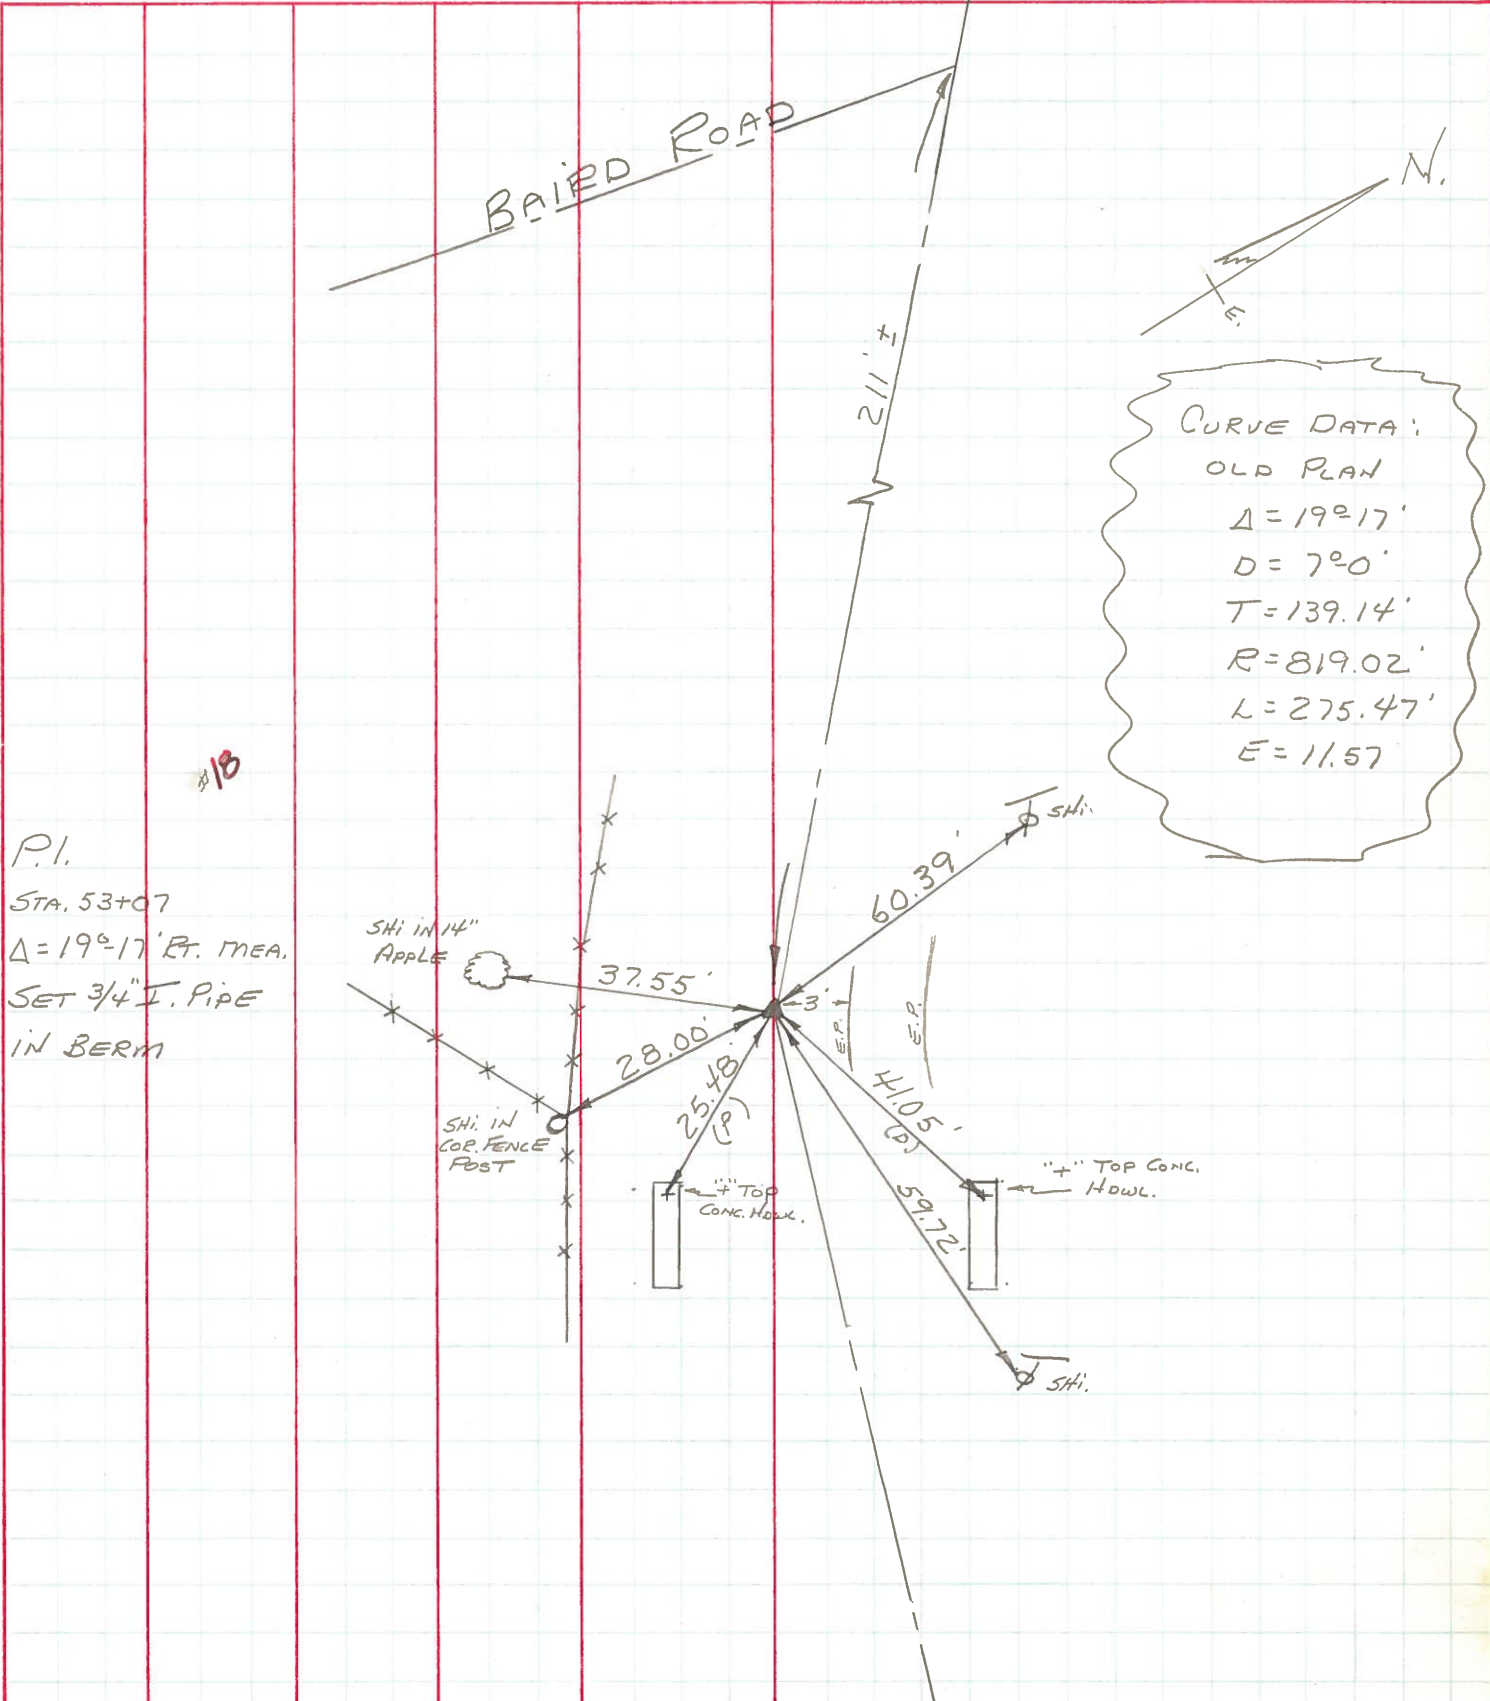 BAIRD ROAD
N.
E.
211' ±
CURVE DATA:
OLD PLAN
Δ = 19°-17'
D = 7°-0'
T = 139.14'
R = 819.02'
L = 275.47'
E = 11.57
#18
P.I.
STA. 53+07
Δ = 19°-17' RT. MEA.
SET 3/4" I. PIPE
IN BERM
SHi.
60.39'
SHi IN 14"
APPLE
37.55'
3'
E.P.
E.P.
28.00'
25.48'
(P)
41.05'
(D)
SHi. IN
COR. FENCE
POST
"+" TOP
CONC. HDWL.
"+" TOP CONC.
HDWL.
59.72'
SHi.